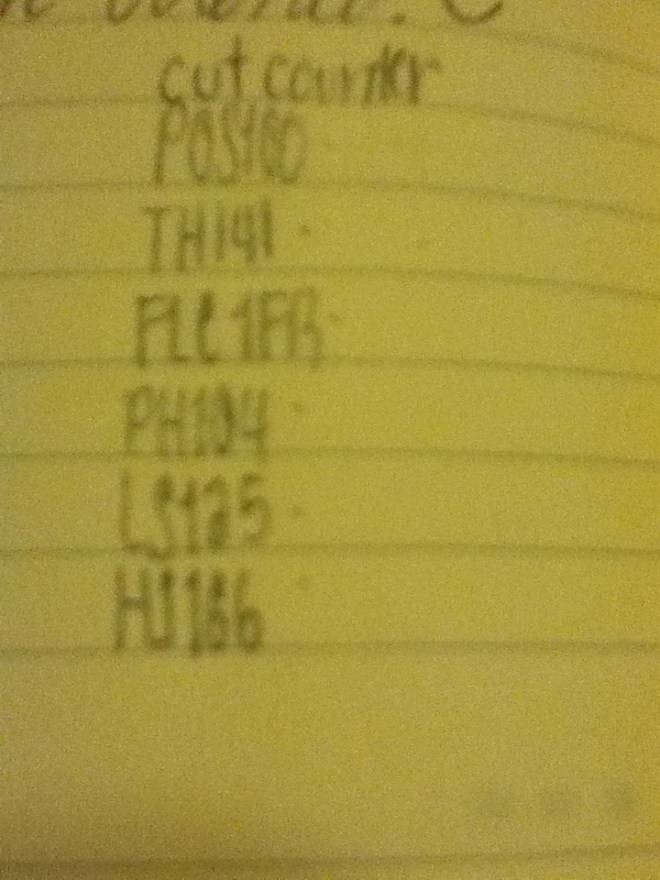 cut counter
POS100
TH141
FLE1FR
PH104
LS125
HS166